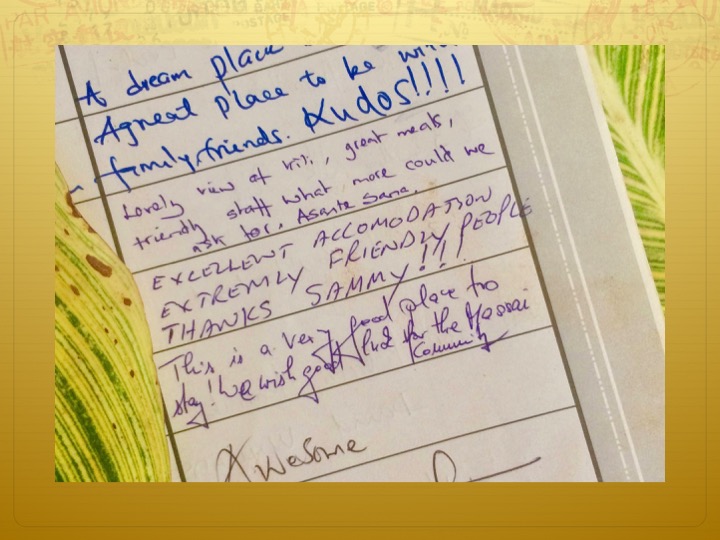 A dream place
A great place to be with
family, friends. Kudos!!!!
Lovely view of kili, great meals,
friendly staff what more could we
ask for. Asante Sana.
EXCELLENT ACCOMODATION
EXTREMLY FRIENDLY PEOPLE
THANKS SAMMY!!!
This is a very good place too
stay! We wish good luck for the Massai
Community
Awesome